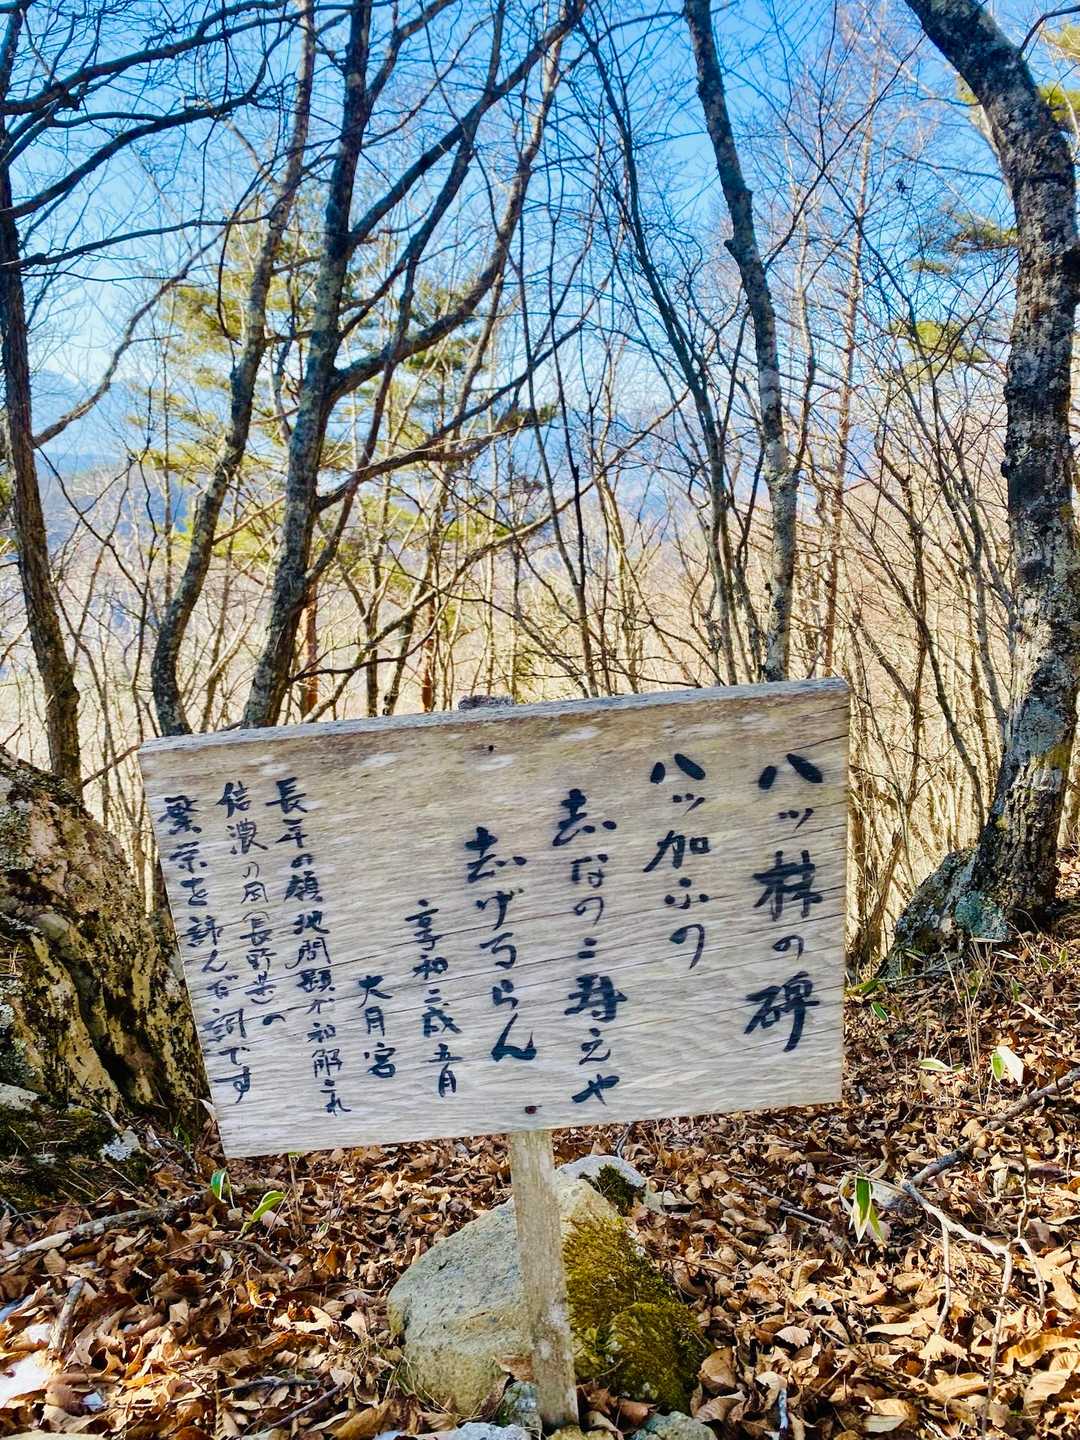 八ッ林の碑
八ッ加ふの
志なのゝ寿えや
志げるらん
享和二歳五月
大月宮
長年の領地問題が和解され
信濃の国(長野県)の
繁栄を詠んだ詞です